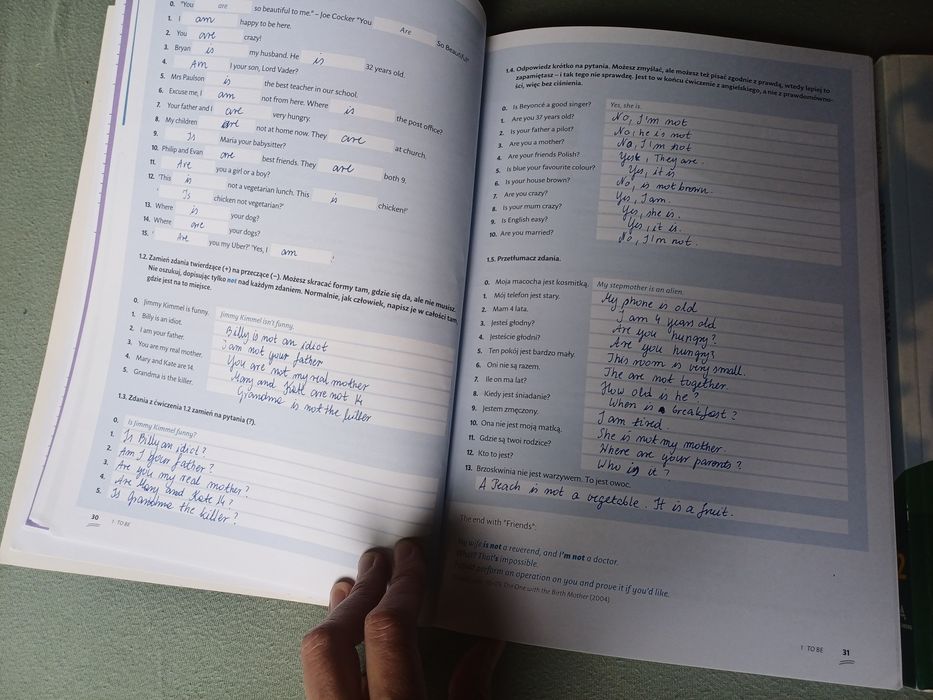 0. "You are so beautiful to me." – Joe Cocker "You Are So Beautiful"
1. I am happy to be here.
2. You are crazy!
3. Bryan is my husband. He is 32 years old.
4. Am I your son, Lord Vader?
5. Mrs Paulson is the best teacher in our school.
6. Excuse me, I am not from here. Where is the post office?
7. Your father and I are very hungry.
8. My children are not at home now. They are at church.
9. Is Maria your babysitter?
10. Philip and Evan are best friends. They are both 9.
11. Are you a girl or a boy?
12. 'This is not a vegetarian lunch. This is chicken!'
'Is chicken not vegetarian?'
13. Where is your dog?
14. Where are your dogs?
15. ' Are you my Uber?' 'Yes, I am !'
1.2. Zamień zdania twierdzące (+) na przeczące (–). Możesz skracać formy tam, gdzie się da, ale nie musisz.
Nie oszukuj, dopisując tylko not nad każdym zdaniem. Normalnie, jak człowiek, napisz je w całości tam,
gdzie jest na to miejsce.
0. Jimmy Kimmel is funny. Jimmy Kimmel isn't funny.
1. Billy is an idiot. Billy is not an idiot
2. I am your father. I am not your father
3. You are my real mother. You are not my real mother
4. Mary and Kate are 14. Mary and Kate are not 14
5. Grandma is the killer. Grandma is not the killer
1.3. Zdania z ćwiczenia 1.2 zamień na pytania (?).
0. Is Jimmy Kimmel funny?
1. Is Billy an idiot?
2. Am I your father?
3. Are you my real mother?
4. Are Mary and Kate 14?
5. Is Grandma the killer?
30 1 TO BE
1.4. Odpowiedz krótko na pytania. Możesz zmyślać, ale możesz też pisać zgodnie z prawdą, wtedy lepiej to
zapamiętasz – i tak tego nie sprawdzę. Jest to w końcu ćwiczenie z angielskiego, a nie z prawdomówno-
ści, więc bez ciśnienia.
0. Is Beyoncé a good singer? Yes, she is.
1. Are you 37 years old? No, I'm not
2. Is your father a pilot? No, he is not
3. Are you a mother? No, I'm not
4. Are your friends Polish? Yes, They are.
5. Is blue your favourite colour? Yes, it is
6. Is your house brown? No, is not brown.
7. Are you crazy? Yes, I am.
8. Is your mum crazy? Yes, she is.
9. Is English easy? Yes, it is.
10. Are you married? No, I'm not.
1.5. Przetłumacz zdania.
0. Moja macocha jest kosmitką. My stepmother is an alien.
1. Mój telefon jest stary. My phone is old
2. Mam 4 lata. I am 4 years old
3. Jesteś głodny? Are you hungry?
4. Jesteście głodni? Are you hungry?
5. Ten pokój jest bardzo mały. This room is very small.
6. Oni nie są razem. The are not together
7. Ile on ma lat? How old is he?
8. Kiedy jest śniadanie? When is breakfast?
9. Jestem zmęczony. I am tired
10. Ona nie jest moją matką. She is not my mother.
11. Gdzie są twoi rodzice? Where are your parents?
12. Kto to jest? Who is it?
13. Brzoskwinia nie jest warzywem. To jest owoc.
A Peach is not a vegetable. It is a fruit.
The end with "Friends":
My wife is not a reverend, and I'm not a doctor.
What? That's impossible.
perform an operation on you and prove it if you'd like.
The One with the Birth Mother (2004)
1 TO BE 31